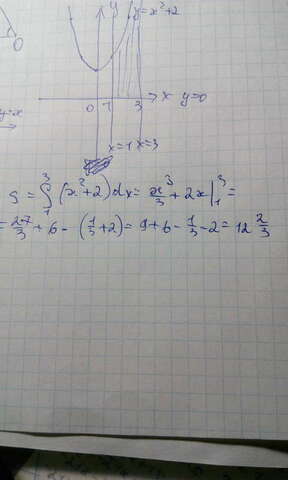 y
y=x²+2
0
y=x
0 1 3 x y=0
x=1 x=3
S = ∫₁³ (x²+2)dx = x³/3 + 2x |₁³ =
= 27/3 + 6 - (1/3 + 2) = 9+6 - 1/3 - 2 = 12 2/3